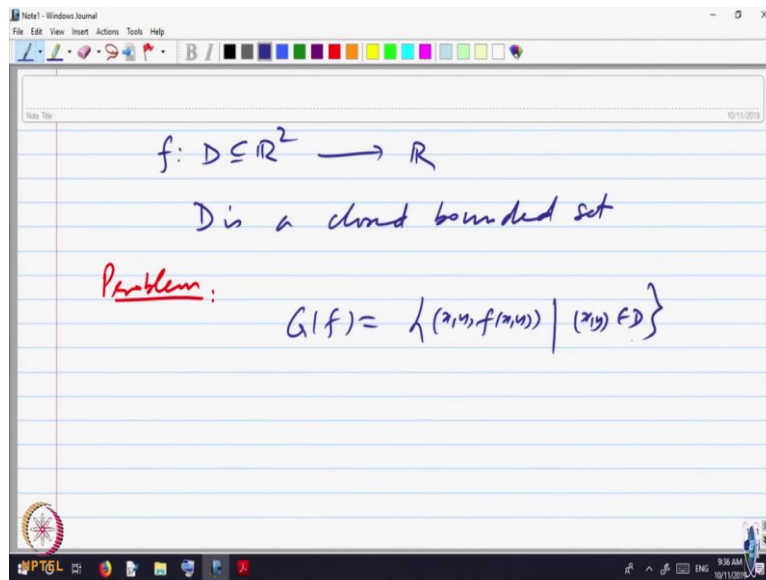 Note1 - Windows Journal
File Edit View Insert Actions Tools Help
B I
Note Title
10/11/2019
f: D ⊆ ℝ² ⟶ ℝ
D is a closed bounded set
Problem:
G(f) = {(x,y, f(x,y)) | (x,y) ∈ D}
NPTEL
ENG
9:36 AM
10/11/2019